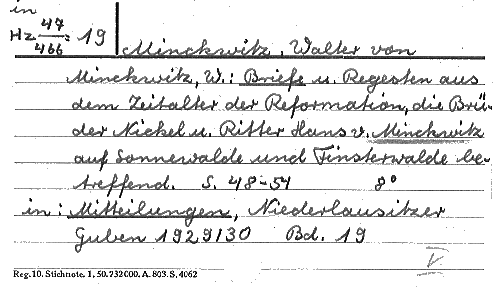 in
Hz 47/466 = 19
Minckwitz, Walter von
Minckwitz, W.: Briefe u. Regesten aus
dem Zeitalter der Reformation, die Brü-
der Nickel u. Ritter Hans v. Minckwitz
auf Sonnewalde und Finsterwalde be-
treffend. S. 48-54 8°
in: Mitteilungen, Niederlausitzer
Guben 1929/30 Bd. 19
Reg. 10. Stichnote. 1, 50. 732000. A. 803. S. 4062